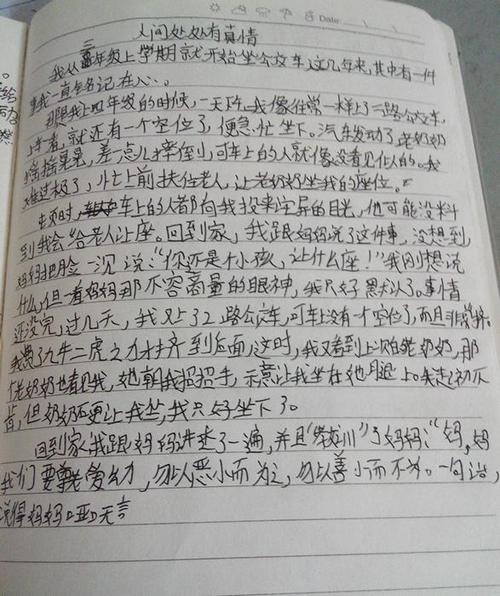 Date:
人间处处有真情
我从三年级上学期就开始坐公交车,这几年来,其中有一件
事我一直铭记在心。
那是我上四年级的时候,一天下午我像往常一样上了二路公交车,
就还有一个空位了,便急忙坐下。汽车发动了,老奶奶
摇摇晃晃,差一点儿摔倒,可车上的人就像没看见似的。我
难过极了,忙上前扶住老人,让老奶奶坐我的座位。
顿时,车上的人都向我投来诧异的目光,他可能没料
到我会给老人让座。回到家,我跟妈妈说了这件事,没想到,
妈妈把脸一沉说:“你还是个小孩,让什么座!”我刚想说
什么,但一看妈妈那不容商量的眼神,我只好默认了。事情
还没完,过几天,我又上了2路公交车,可车上没有一个空位了,而且非常挤,
我费了九牛二虎之力才挤到后面,这时,我又看到上次的老奶奶,那
个老奶奶也看见我,她朝我招招手,示意让我坐在她腿上。我起初不
肯,但奶奶硬要让我坐,我只好坐下了。
回到家,我跟妈妈讲述了一遍,并且“教训”了妈妈:“妈,妈
我们要尊老爱幼,勿以恶小而为之,勿以善小而不为。一句话,
说得妈妈哑口无言